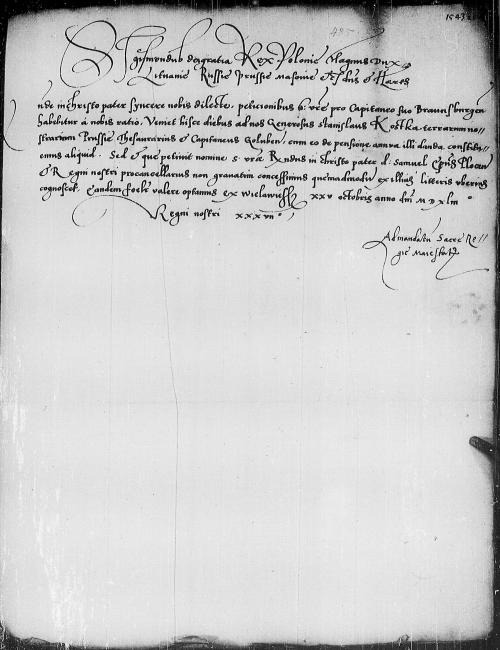 1543
495
Sigismundus dei gratia Rex Polonie Magnus Dux
Litvanie Russie Prussie Masovie etc. dns et Heres
nde in Christo pater syncere nobis dilecte. peticionibus s. vre pro Capitaneo suo Braunsburgen
habebitur a nobis ratio. Veniet hisce diebus ad nos Generosus Stanislaus Kostka terrarum no-
strarum Prussie Thesaurarius et Capitaneus Goluben. cum eo de pensione annua illi danda constitu-
emus aliquid. Sed et que petiuit nomine s. vre Rndus in Christo pater d. Samuel Eps Plocen
et Regni nostri procancellarius non gravatim concessimus quemadmodum ex illius litteris uberius
cognoscet. Eandem foeliciter valere optamus ex xxv octobris anno dni M D xliii
Regni nostri xxxvii
Ad mandatum Sacre Re-
gie Maiestatis